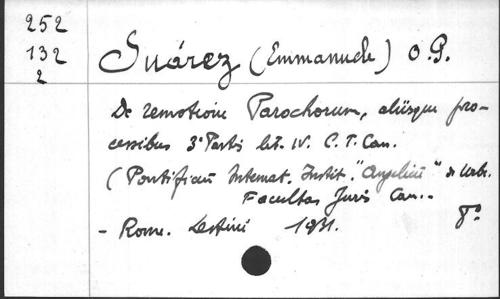 252
132
2
Suárez (Emmanuele) O.P.
De remotione Parochorum, aliisque pro-
cessibus 3ª Partis lit. IV. C. I. Can.
(Pontificium Internat. Instit. "Angelicum" de Urbe.
Facultas Juris Can..
- Rome. 1931. 8º